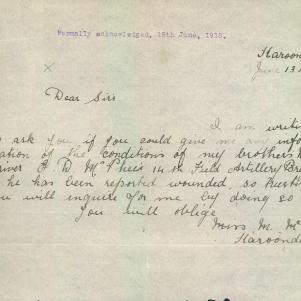 Formally acknowledged, 18th June, 1918.
Haroon
June 13
Dear Sirs
I am writi
ask you if you could give me any info
ation of the conditions of my brothers
river E D McPheis 14th Field Artillery Br
he has been reported wounded, so trust
u will enquire for me by doing so
You will oblige
Miss M. Mc
Karoonda